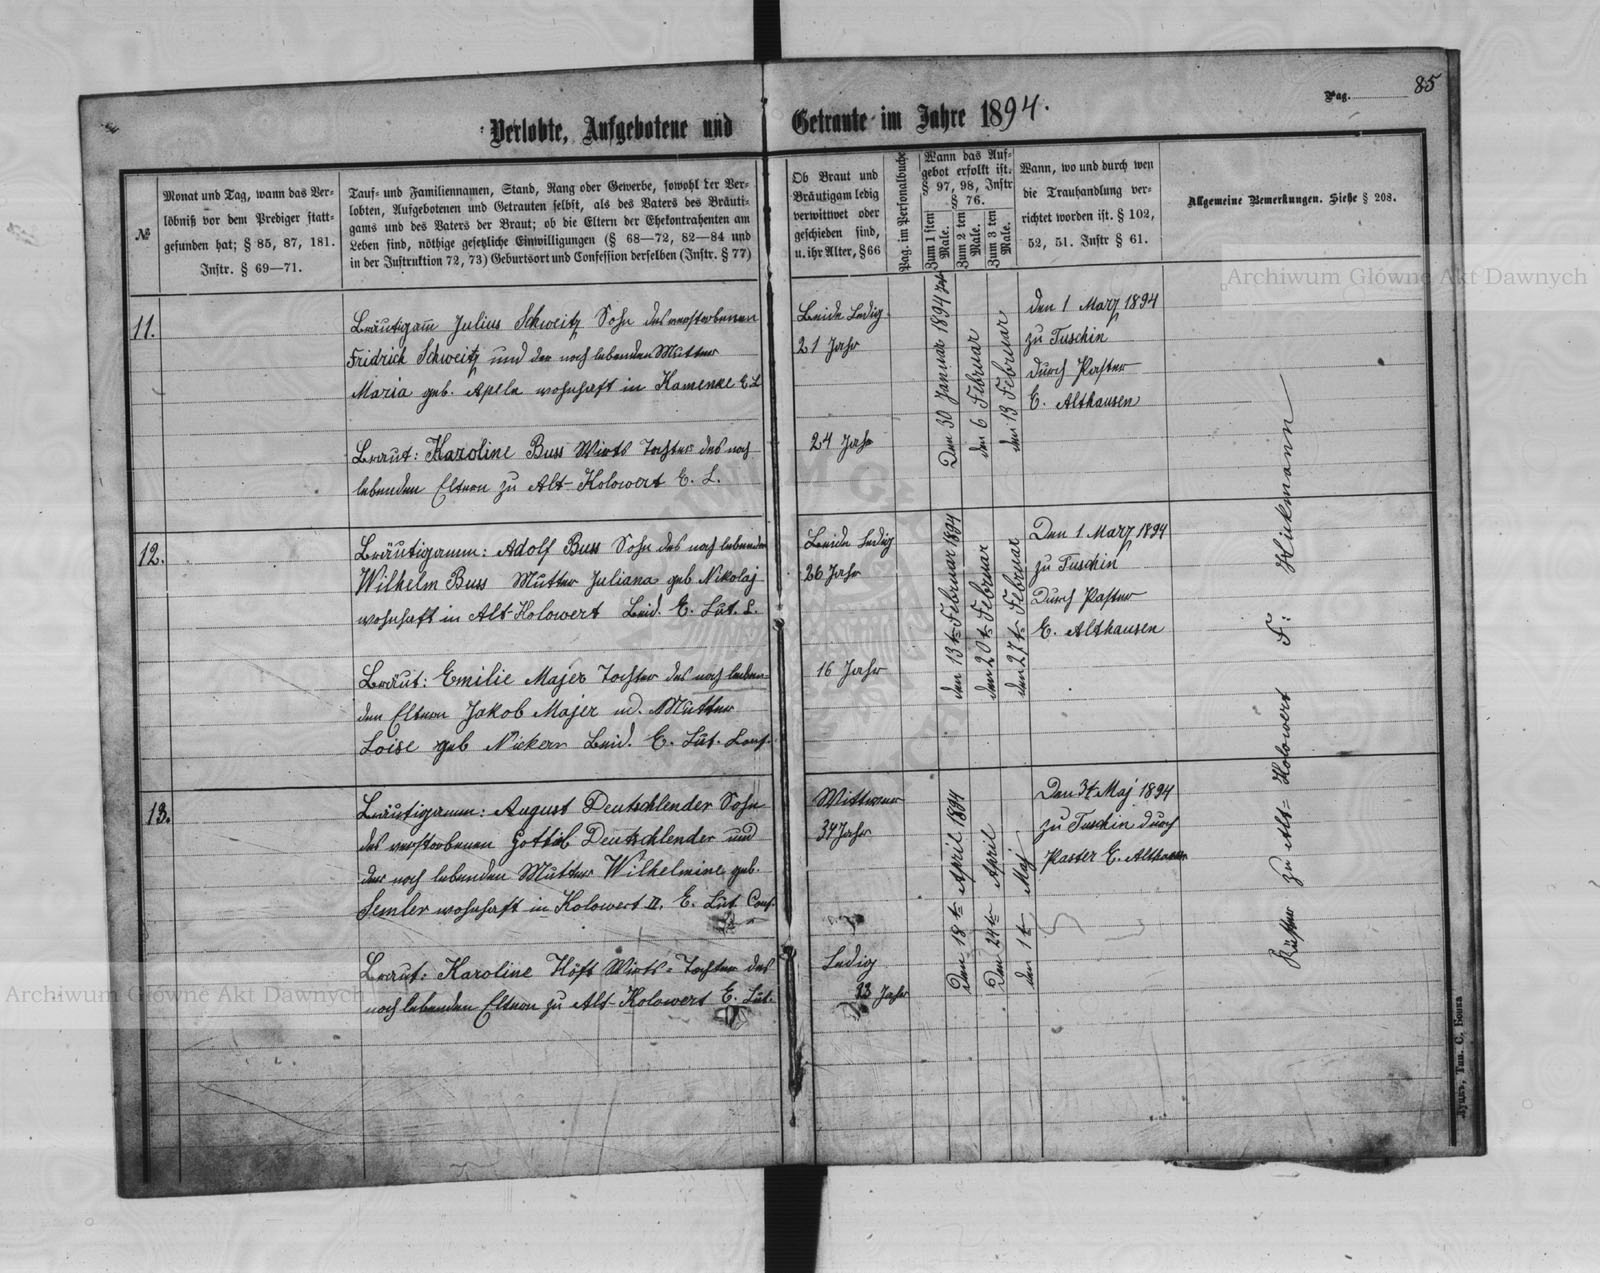 Pag. 85
Verlobte, Aufgebotene und Getraute im Jahre 1894.
№
Monat und Tag, wann das Ver-
löbniß vor dem Prediger statt-
gefunden hat; § 85, 87, 181.
Instr. § 69—71.
Tauf- und Familiennamen, Stand, Rang oder Gewerbe, sowohl der Ver-
lobten, Aufgebotenen und Getrauten selbst, als des Vaters des Bräuti-
gams und des Vaters der Braut; ob die Eltern der Ehekontrahenten am
Leben sind, nöthige gesetzliche Einwilligungen (§ 68—72, 82—84 und
in der Instruktion 72, 73) Geburtsort und Confession derselben (Instr. § 77)
Ob Braut und
Bräutigam ledig
verwittwet oder
geschieden sind,
u. ihr Alter, § 66
Pag. im Personalbuche
Wann das Auf-
gebot erfollt ist.
§ 97, 98, Instr
§ 76.
Zum 1 sten
Male.
Zum 2 ten
Male.
Zum 3 ten
Male.
Wann, wo und durch wen
die Trauhandlung ver-
richtet worden ist. § 102,
52, 51. Instr § 61.
Allgemeine Bemerkungen. Siehe § 208.
11.
Bräutigam Julius Schweitz Sohn des verstorbenen
Fridrich Schweitz und der noch lebenden Mutter
Maria geb. Apeln wohnhaft in Kamenke E L
Braut: Karoline Buss Wirts Tochter des noch
lebenden Eltern zu Alt-Kolowert E. L.
Beide Ledig
21 Jahr
24 Jahr
Den 30 Januar 1894
den 6 Februar
den 13 Februar
den 1 Marz 1894
zu Tuschin
durch Paster
E. Althausen
12.
Bräutigamm: Adolf Buss Sohn des noch lebenden
Wilhelm Buss Mutter Juliana geb Nikolaj
wohnhaft in Alt-Kolowert Beid. E. Lut. L.
Braut: Emilie Majer Tochter des noch leben-
den Eltern Jakob Majer u. Mutter
Loise geb Nickern Beid. E. Lut. Conf.
Beide Ledig
26 Jahr
16 Jahr
den 13 t Februar 1894
den 20 t Februar
den 27 t Februar
Den 1 Marz 1894
zu Tuschin
Durch Paster
E. Althausen
13.
Bräutigamm: August Deutschlender Sohn
des verstorbenen Gottlib Deutschlender und
der noch lebenden Mutter Wilhelmine geb.
Semler wohnhaft in Kolowert II. E. Lut Conf.
Braut: Karoline Höft Wirts-Tochter des
noch lebenden Eltern zu Alt-Kolowert E. Lut.
Wittwer
34 Jahr
Ledig
23 Jahr
Den 18 t April 1894
Den 24 t April
den 1 t Maj
Den 3t Maj 1894
zu Tuschin durch
Paster E. Althausen
Küster zu Alt-Kolowert F: Hickmann
Луцкъ, Тип. С, Бонка
Archiwum Główne Akt Dawnych
Archiwum Główne Akt Dawnych